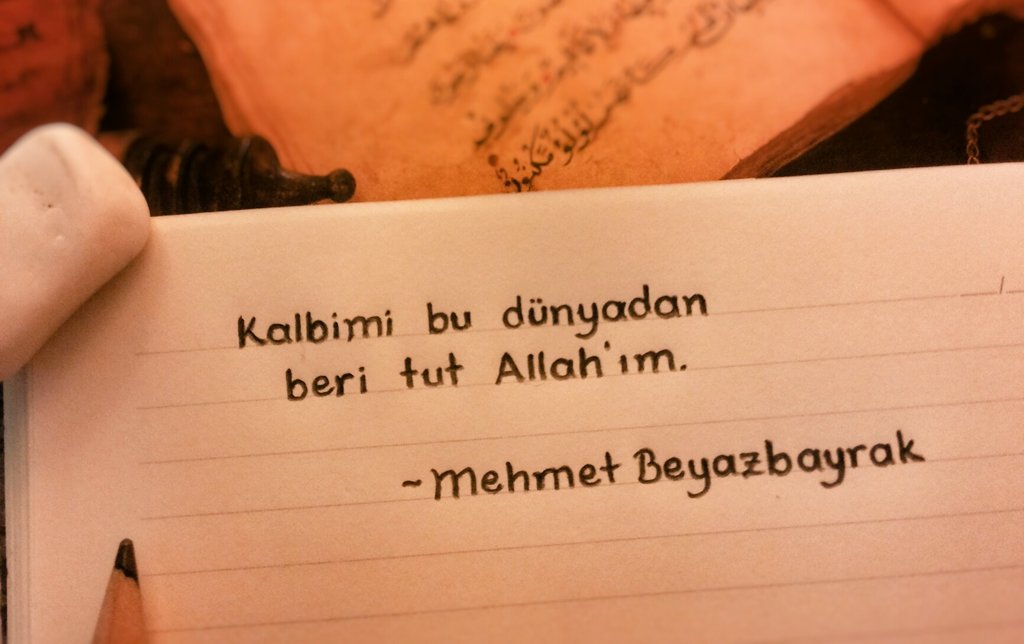 Kalbimi bu dünyadan
beri tut Allah'ım.
~Mehmet Beyazbayrak